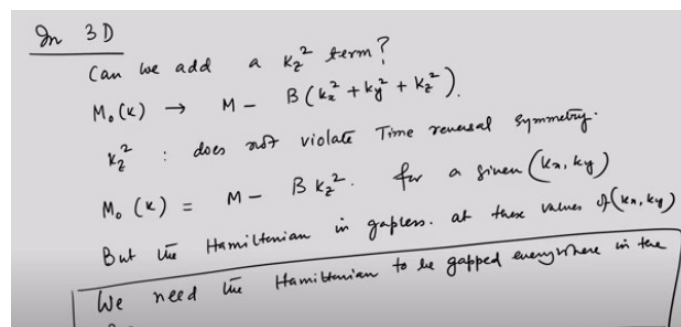 In 3D
Can we add a k_z^2 term?
M_0(k) → M - B(k_x^2 + k_y^2 + k_z^2).
k_z^2 : does not violate Time reversal symmetry.
M_0(k) = M - B k_z^2. for a given (k_x, k_y)
But the Hamiltonian in gapless. at these values of (k_x, k_y)
We need the Hamiltonian to be gapped everywhere in the